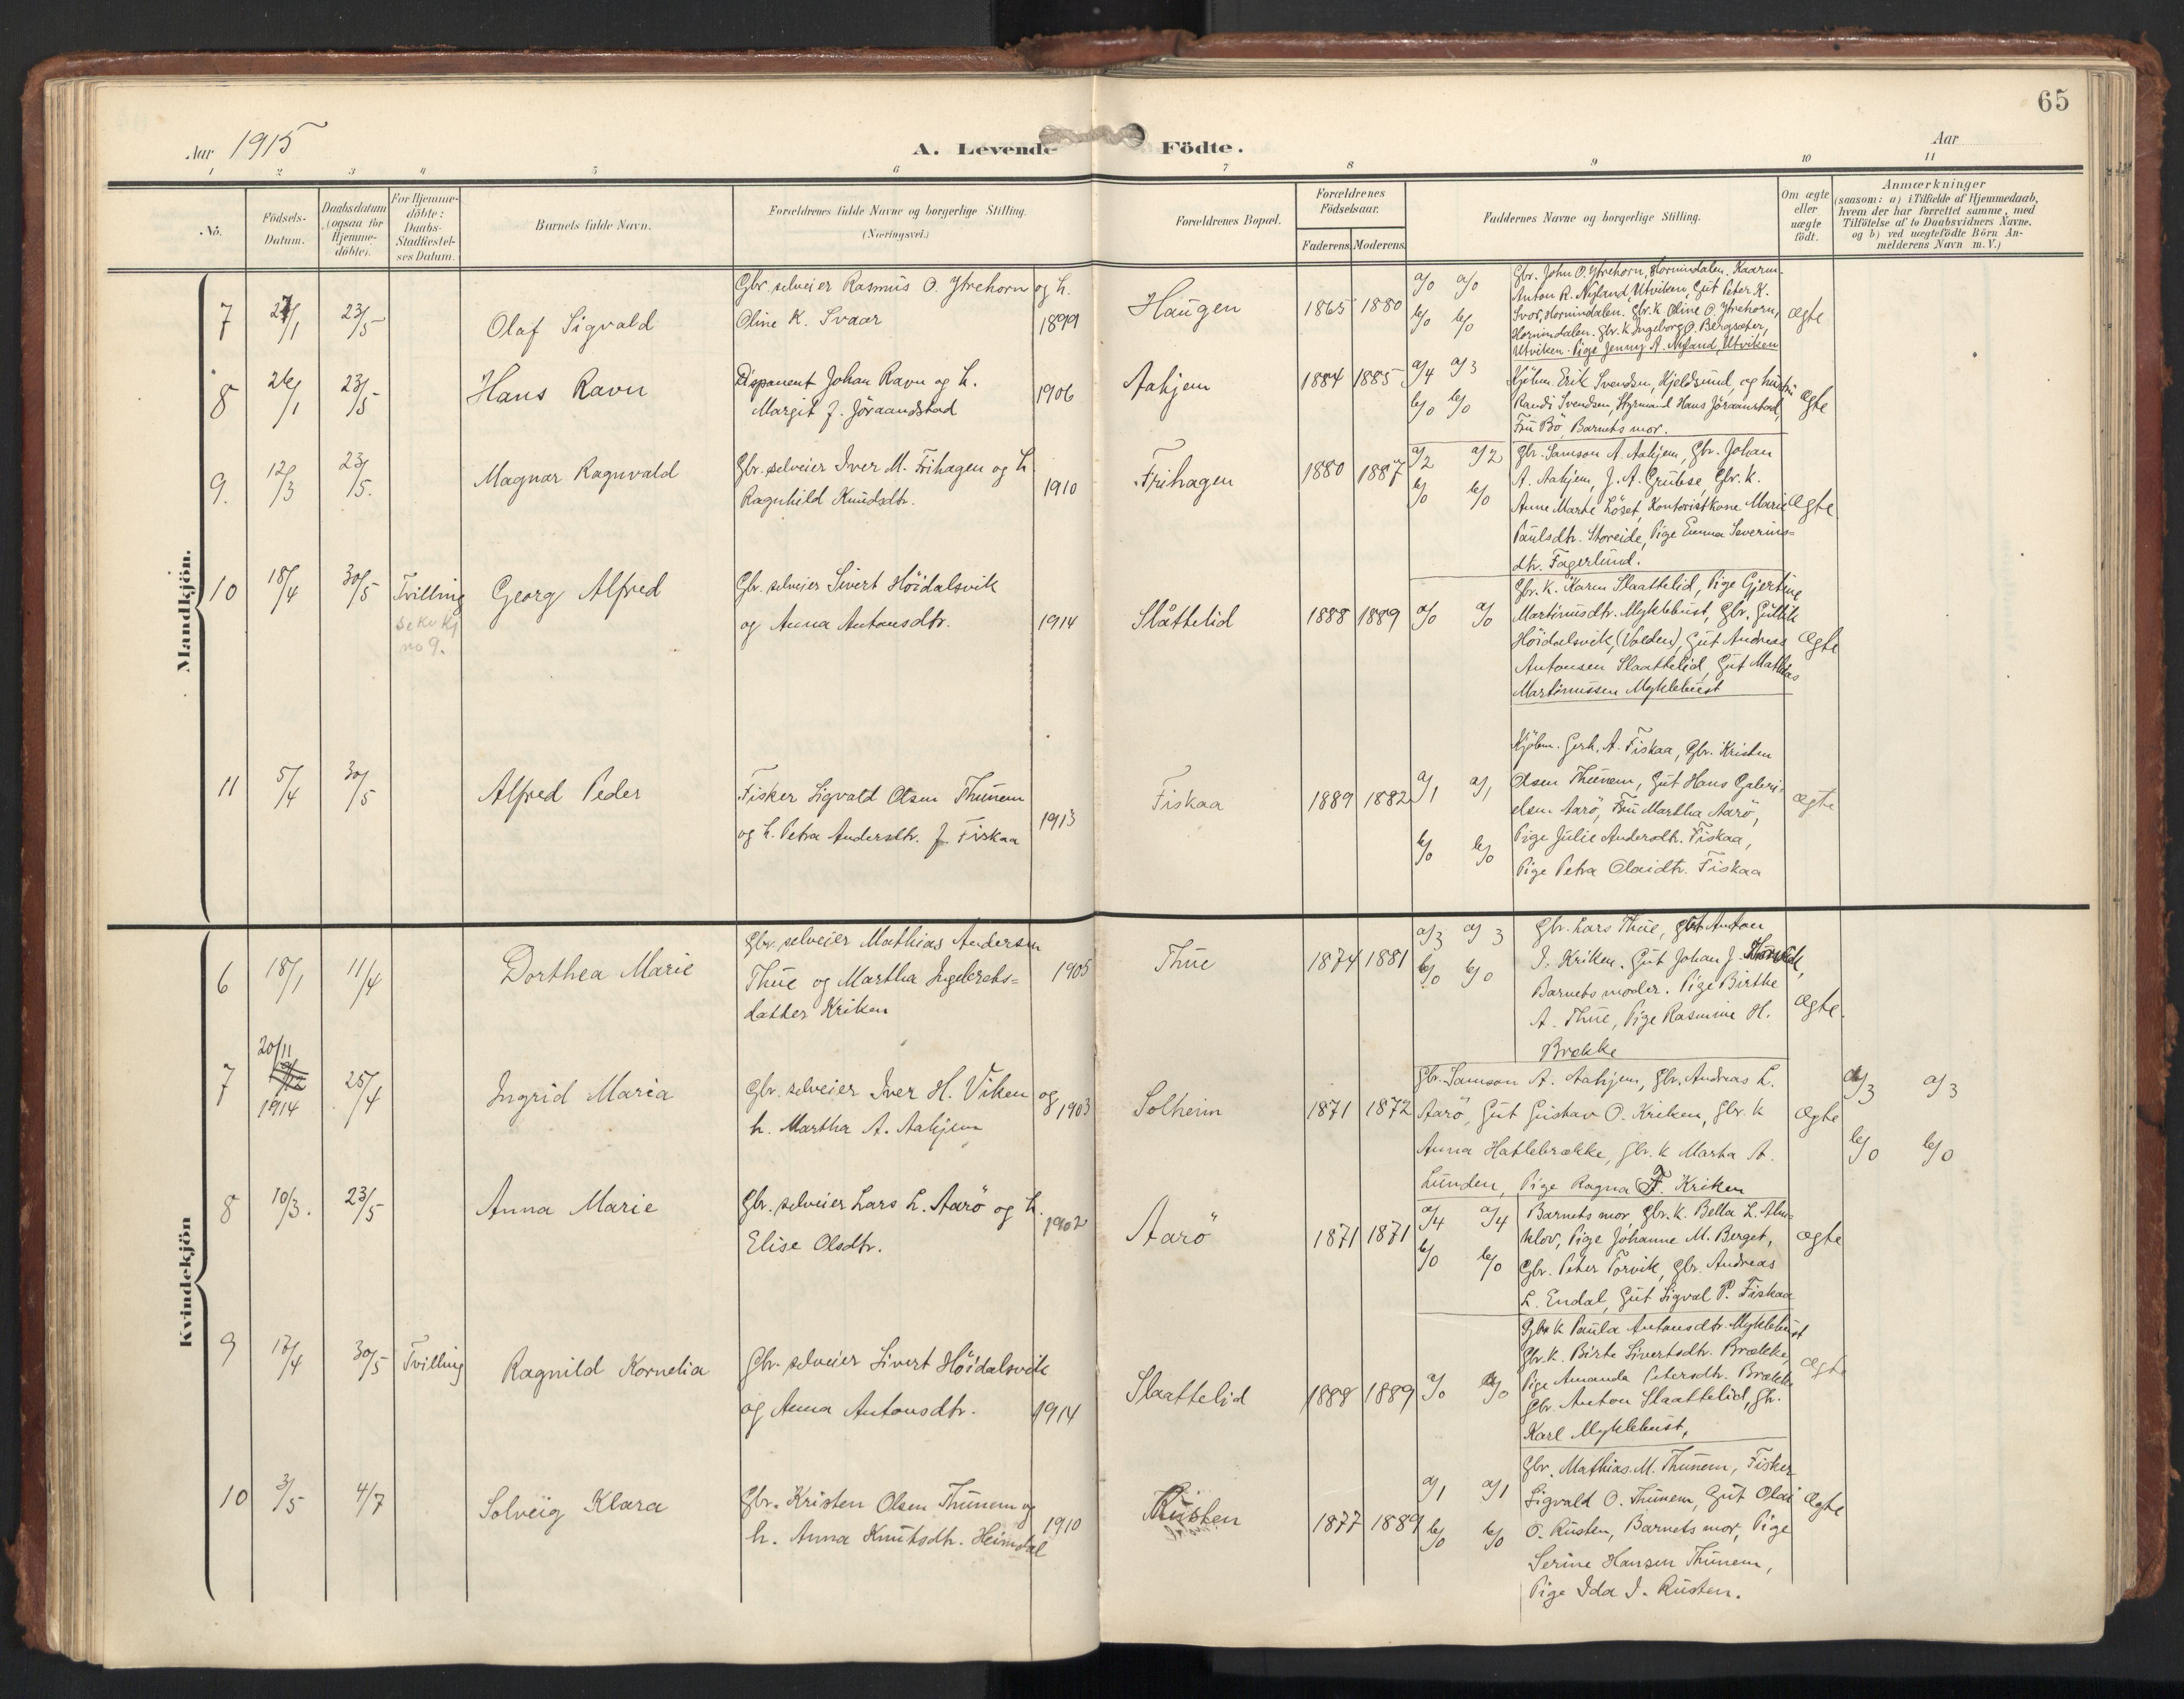 65
Aar 1915
A. Levende Födte.
Aar
1 2 3 4 5 6 7 8 9 10 11
No.
Födsels-
Datum.
Daabsdatum
(ogsaa for
Hjemme-
döbte).
For Hjemme-
döbte:
Daabs-
Stadfæstel-
ses Datum.
Barnets fulde Navn.
Forældrenes fulde Navne og borgerlige Stilling.
(Næringsvei.)
Forældrenes Bopæl.
Forældrenes
Födselsaar.
Faderens Moderens
Faddernes Navne og borgerlige Stilling.
Om ægte
eller
uægte
födt.
Anmærkninger
(saasom: a) i Tilfælde af Hjemmedaab,
hvem der har forrettet samme, med
Tilföielse af to Daabsvidners Navne,
og b) ved uægtefödte Börn An-
melderens Navn m. V.)
Mandkjön.
7 27/1 23/5
Olaf Sigvald
Gbr. selveier Rasmus O. Ytrehorn og h.
Oline K. Svaar 1899
Haugen 1865 1880
a/0 a/0
b/0 b/0
Gbr. John O. Ytrehorn, Hornindalen.
Anton R. Nyland, Utviken, Gut Peter K.
Svor, Hornindalen. Gbr.k. Oline O. Ytrehorn,
Hornindalen. Gbr. k. Ingeborg O. Bergsæter,
Utviken. Pige Jenny A. Nyland, Utviken
ægte
8 26/1 23/5
Hans Ravn
Disponent Johan Ravn og h.
Margit f. Jöraandstad 1906
Aahjem 1884 1885
a/4 a/3
b/0 b/0
Kjöbm. Erik Svendsen, Kjeldsund, og hustru
Randi Svendsen, Styrmand Hans Jöraanstad,
Fru Bö, Barnets mor.
ægte
9. 12/3 23/5.
Magnar Ragnvald
Gbr. selveier Iver M. Frihagen og h.
Ragnhild Knudsdtr. 1910
Frihagen 1880 1887
a/2 a/2
b/0 b/0
Gbr. Samson A. Aahjem, Gbr. Johan
A. Aahjem, J. A. Grubse, Gbr. k.
Anne Marte Löset, Kontoristkone Marie
Paulsdtr. Storeide, Pige Emma Severins=
dtr. Fagerlund.
ægte
10 18/4 30/5 Tvilling
se kv kj
no 9.
Georg Alfred
Gbr. selveier Sivert Höidalsvik
og Anna Antonsdtr. 1914
Slåttelid 1888 1889
a/0 a/0
Gbr. K. Karen Slaattelid, Pige Gjertine
Martinusdtr. Myklebust, Gbr. Gullik
Höidalsvik, (Volden), Gut Andreas
Antonsen Slaattelid, Gut Mathias
Martinussen Myklebust
ægte
11 5/4 30/5
Alfred Peder
Fisker Sigvald Olsen Thunem
og h. Petra Andersdtr. f. Fiskaa 1913
Fiskaa 1889 1882
a/1 a/1
b/0 b/0
Kjöbm. Gerh. A. Fiskaa, Gbr. Kristen
Olsen Thunem, Gut Hans Galeri-
elsen Aarö, Fru Martha Aarö,
Pige Julie Andersdtr. Fiskaa,
Pige Petra Olaidtr. Fiskaa
ægte
Kvindekjön
6 18/1 11/4
Dorthea Marie
Gbr. selveier Mathias Andersen
Thue og Martha Ingebrets= 1905
datter Kriken
Thue 1874 1881
a/3 a/3
b/0 b/0
Gbr. Lars Thue, Gut Anton
I. Kriken. Gut Johan J.
Barnets moder. Pige Birthe
A. Thue, Pige Rasmine H.
Brække
ægte.
7 20/11
1914 25/4
Ingrid Maria
Gbr. selveier Iver H. Viken og
h. Martha A. Aahjem 1903
Solheim 1871 1872
Gbr. Samson A. Aahjem, Gbr. Andreas L.
Aarö, Gut Gustav O. Kriken, Gbr. k
Anna Hatlebrække, Gbr. k Marta A.
Lunden, Pige Ragna F. Kriken
ægte
a/3 a/3
b/0 b/0
8 10/3. 23/5
Anna Marie
Gbr. selveier Lars L. Aarö og h.
Elise Olsdtr. 1902
Aarö 1871 1871
a/4 a/4
b/0 b/0
Barnets mor, Gbr. K. Bella L. Alm=
klov, Pige Johanne M. Berget,
Gbr. Peter Torvik, Gbr. Andreas
L. Endal, Gut Sigval P. Fiskaa
ægte
9 18/4 30/5 Tvilling
Ragnild Kornelia
Gbr. selveier Sivert Höidalsvik
og Anna Antonsdtr. 1914
Slaattelid 1888 1889
a/0 a/0
Gbr k Paula Antonsdtr. Myklebust
Gbr. k. Birte Sivertsdtr. Brække,
Pige Amanda Petersdtr. Brække
Gbr. Anton Slaattelid, Gbr.
Karl Myklebust,
ægte
10 3/5 4/7
Solveig Klara
Gbr. Kristen Olsen Thunem og
h. Anna Knutsdtr. Heimdal 1910
Rusten 1877 1889
a/1 a/1
b/0 b/0
Gbr. Mathias M. Thunem, Fisker
Sigvald O. Thunem, Gut Olai
O. Rusten, Barnets mor, Pige
Serine Hansen Thunem,
Pige Ida I. Rusten.
ægte